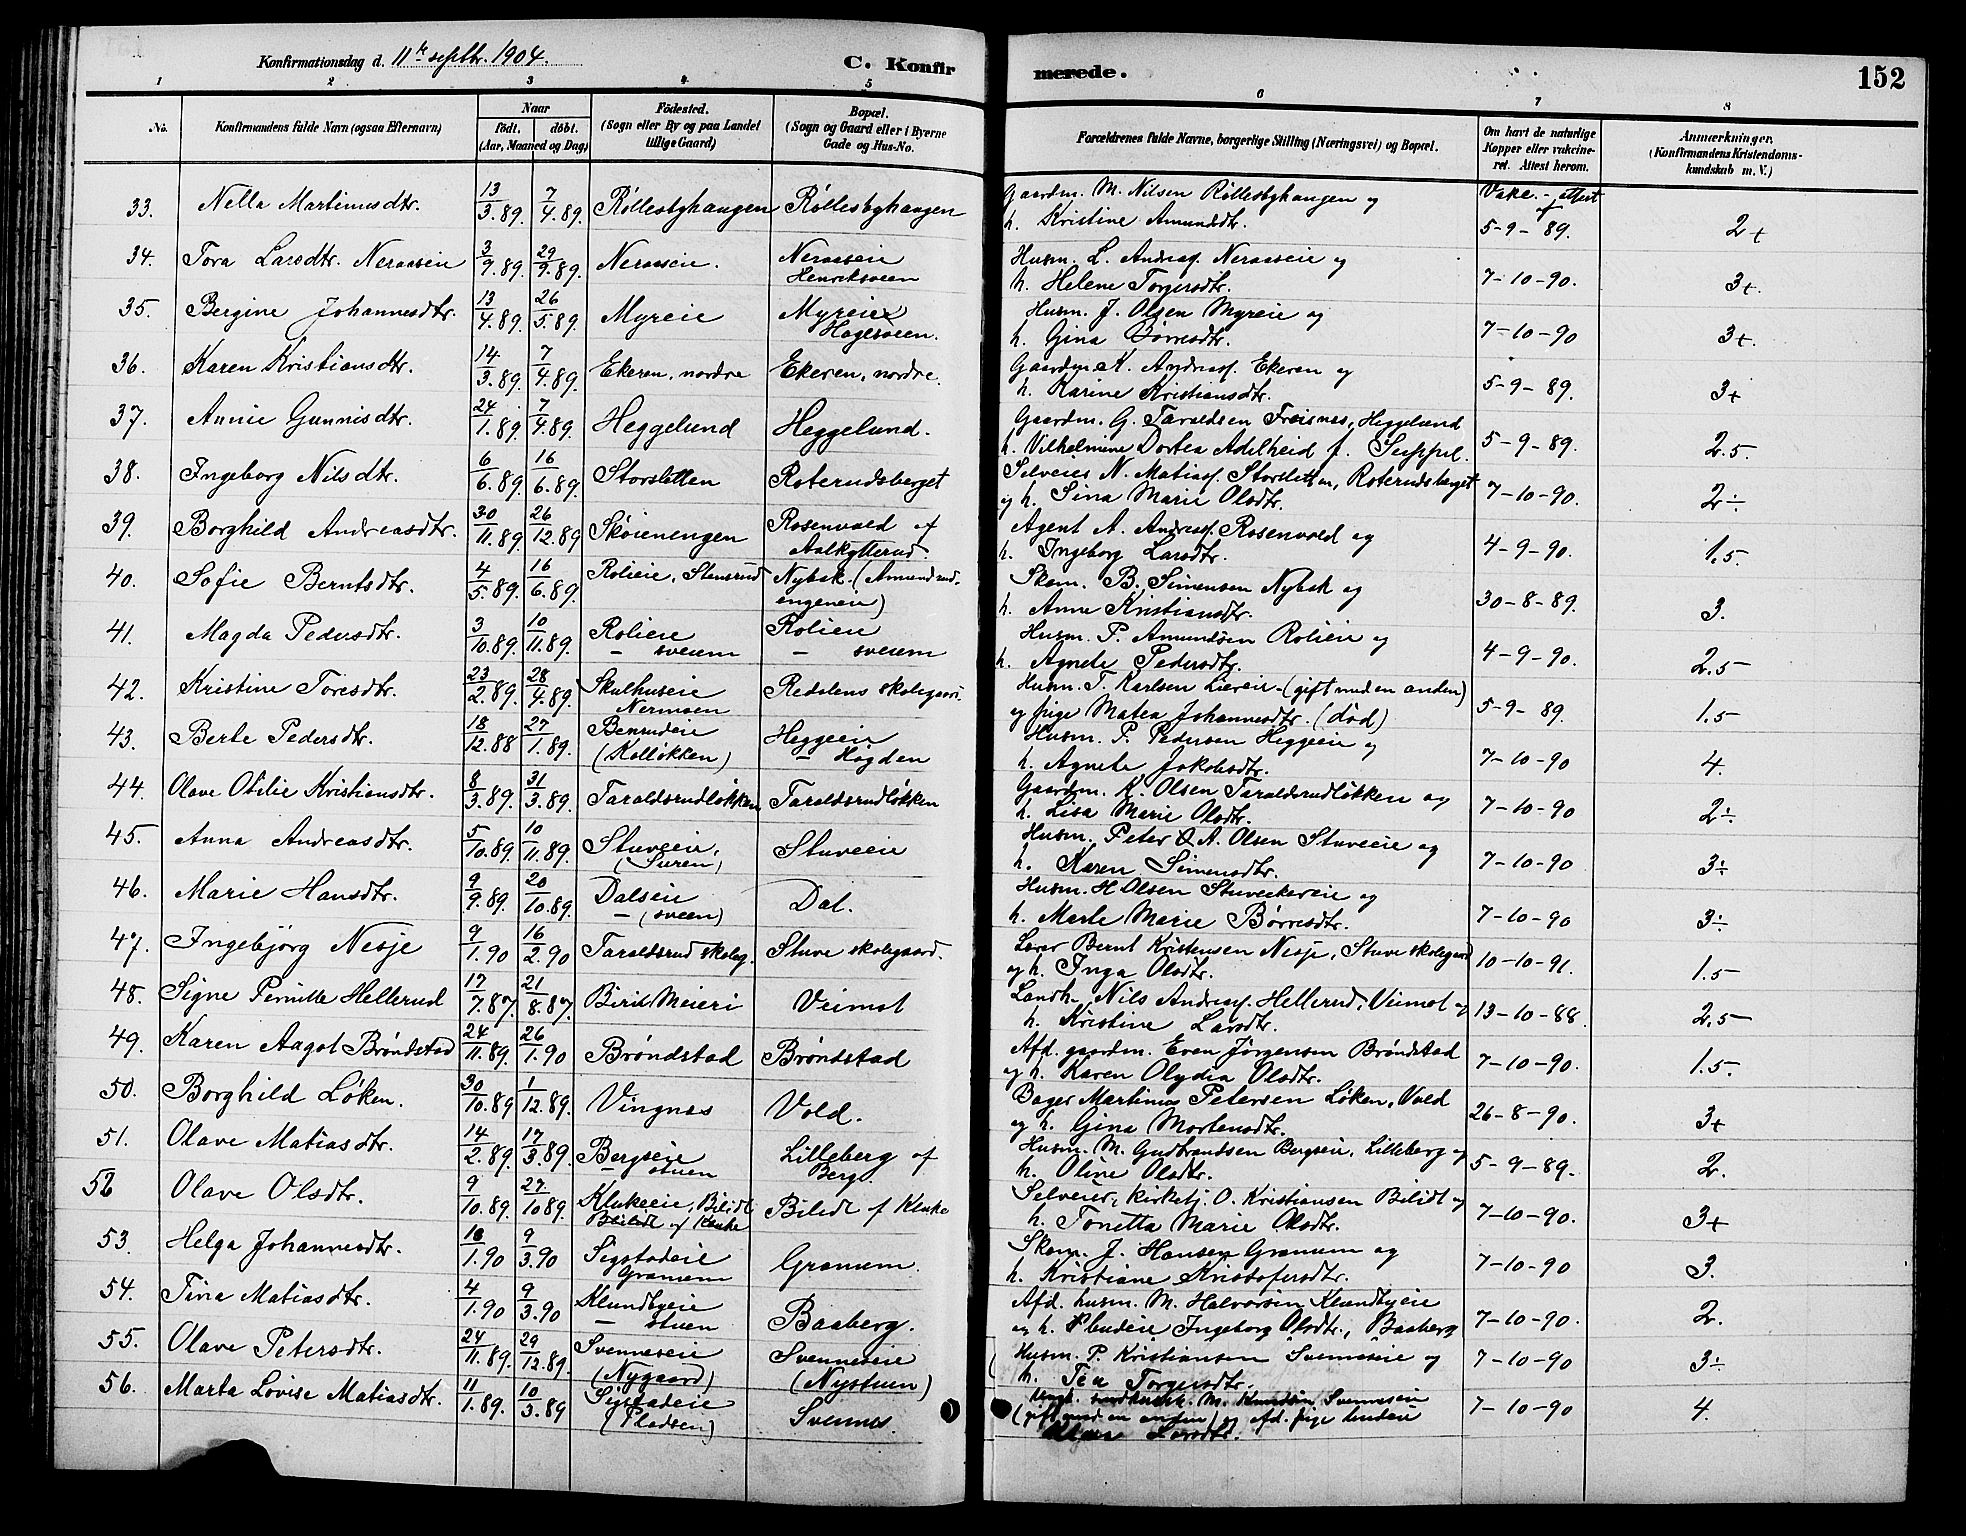 Konfirmationsdag d. 11te septbr. 1904.
C. Konfirmerede.
152
1 2 3 4 5 6 7 8
No.
Konfirmandens fulde Navn (ogsaa Efternavn)
Naar
födt. döbt.
(Aar, Maaned og Dag)
Födested.
(Sogn eller By og paa Landet
tillige Gaard)
Bopæl.
(Sogn og Gaard eller i Byerne
Gade og Hus-No.
Forældrenes fulde Navne, borgerlige Stilling (Næringsvei) og Bopæl.
Om havt de naturlige
Kopper eller vakcine-
ret. Attest herom.
Anmærkninger.
(Konfirmandens Kristendoms-
kundskab m. V.)
33. Nella Martinusdtr. 13/3.89. 7/4.89. Röllesbyhaugen Röllesbyhaugen Gaardm. M. Nilsen Röllesbyhaugen og Vakc. attest
h. Kristine Amundsdtr. 5-9-89. 2+
34. Tora Larsdtr. Neraaseie 3/9.89. 29/9.89. Neraaseie. Neraaseie Husm. L. Andreass. Neraaseie og
Henriksveen h. Helene Torgersdtr. 7-10-90. 3+.
35. Bergine Johannesdtr. 13/4.89. 26/5.89 Myreie Myreie Husm. J. Olsen Myreie og
Hagesveen. h. Gina Börresdtr. 7-10-90 3+.
36. Karen Kristiansdtr. 14/3.89. 7/4.89. Ekeren, nordre Ekeren, nordre. Gaardm. K. Andreass. Ekeren og
h. Karine Kristiansdtr. 5-9-89. 3+
37. Annie Gunnisdtr. 24/1.89. 7/4.89. Heggelund Heggelund. Gaardm. G. Taraldsen Freisnes, Heggelund
h. Vilhelmine Dortea Adelheid f. Seppel. 5-9-89. 2.5.
38. Ingeborg Nilsdtr. 6/6.89. 16/6.89. Storsletten Roterudsberget Selveier N. Matiass. Storsletten, Roterudsberget
og h. Sina Marie Olsdtr. 7-10-90. 2÷
39. Borghild Andreasdtr. 30/11.89. 26/12.89 Sköienengen Rosenvold af Agent A. Andreass. Rosenvold og
Aalkytterud. h. Ingeborg Larsdtr. 4-9-90. 1.5.
40. Sofie Berntsdtr. 4/5.89. 16/6.89. Rolieie, Stensrud Nybak (Amundrud- Skom. B. Simensen Nybak og
engeneie) h. Anne Kristiansdtr. 30-8-89. 3.
41. Magda Pedersdtr. 3/10.89. 10/11.89. Rolieie Rolieie Husm. P. Amundsen Rolieie og
– sveeen – sveeen h. Agnete Pedersdtr. 4-9-90. 2.5
42. Kristine Toresdtr. 23/2.89. 28/4.89. Skulhuseie Redalens skolegaard. Husm. T. Karlsen Liereie (gift med en anden)
Nermoen og pige Matea Johannesdtr. (död) 5-9-89. 1.5
43. Berte Pedersdtr. 18/12.88 27/1.89. Bensrudeie Heggeeie Husm. P. Pedersen Heggeeie og
(Kollökken) – Högden h. Agnete Jakobsdtr. 7-10-90 4.
44. Olave Otilie Kristiansdtr. 8/3.89. 31/3.89. Taraldsrudlökken Taraldsrudlökken Gaardm. K. Olsen Taraldsrudlökken og
h. Lisa Marie Olsdtr. 7-10-90 2÷
45. Anna Andreasdtr. 5/10.89. 10/11.89. Stuveeie, Stuveeie Husm. Peter A. Olsen Stuveeie og
(Sveen) h. Karen Simensdtr. 7-10-90 3÷
46. Marie Hansdtr. 9/9.89. 20/10.89. Dalseie Dal. Husm. H. Olsen Stuveekereie og
– (sveen) h. Marte Marie Börresdtr. 7-10-90 3÷
47. Ingebjörg Nesje 9/1.90 16/2.90 Taraldsrud skoleg. Stuve skolegaard. Lærer Bernt Kristensen Nesje, Stuve skolegaard
og h. Inga Olsdtr. 10-10-91. 1.5
48. Signe Pernille Hellerud 17/7.87. 21/8.87. Biris Meieri Veimot Landh. Nils Andreass. Hellerud, Veimot og
h. Kristine Larsdtr. 13-10-88. 2.5
49. Karen Aagot Bröndstad 24/11.89. 26/1.90 Bröndstad Bröndstad Afd. gaardm. Even Jörgensen Bröndstad
og h. Karen Olydia Olsdtr. 7-10-90. 1.5.
50. Borghild Löken. 30/10.89 1/12.89. Vingnes Vold. Bager Martinus Petersen Löken, Vold
og h. Gina Mortensdtr. 26-8-90. 3+
51. Olave Matiasdtr. 14/2.89. 17/3.89. Bergseie Lilleberg af Husm. M. Gudbrandsen Bergseie, Lilleberg og
– stuen Berg. h. Oline Olsdtr. 5-9-89. 2.
52 Olave Olsdtr. 9/10.89. 27./10.89. Klukeeie, Bilidt Bilidt af Kluke Selveier, kirketj. O. Kristiansen Bilidt og
Bilidt af Kluke h. Tonetta Marie Olsdtr. 7-10-90. 3+
53. Helga Johannesdtr. 18/1.90 9/3.90 Sigstadeie Granum. Skom. J. Hansen Granum og
Granum h. Kristiane Kristofersdtr. 7-10-90 3.
54. Tina Matiasdtr. 4/1.90 9/3.90 Klundbyeie Baaberg. Afd. husm. M. Halvorsen Klundbyeie
– stuen og h. Ingeborg Olsdtr., Baaberg 7-10-90. 2.
55. Olave Petersdtr. 24/11.89. 29/12.89. Svenneseie Svenneseie Husm. P. Kristiansen Svenneseie og
(Nygaard) (Nystuen) h. Tea Torgersdtr. 7-10-90 3÷
56. Marta Lovise Matiasdtr. 11/1.89. 10/3.89 Sigstadeie Svennes. M. Knudsen Svenneseie
(Pladsen) (gift med en anden) og afd. pige 7-10-90 4.
Larsdtr.